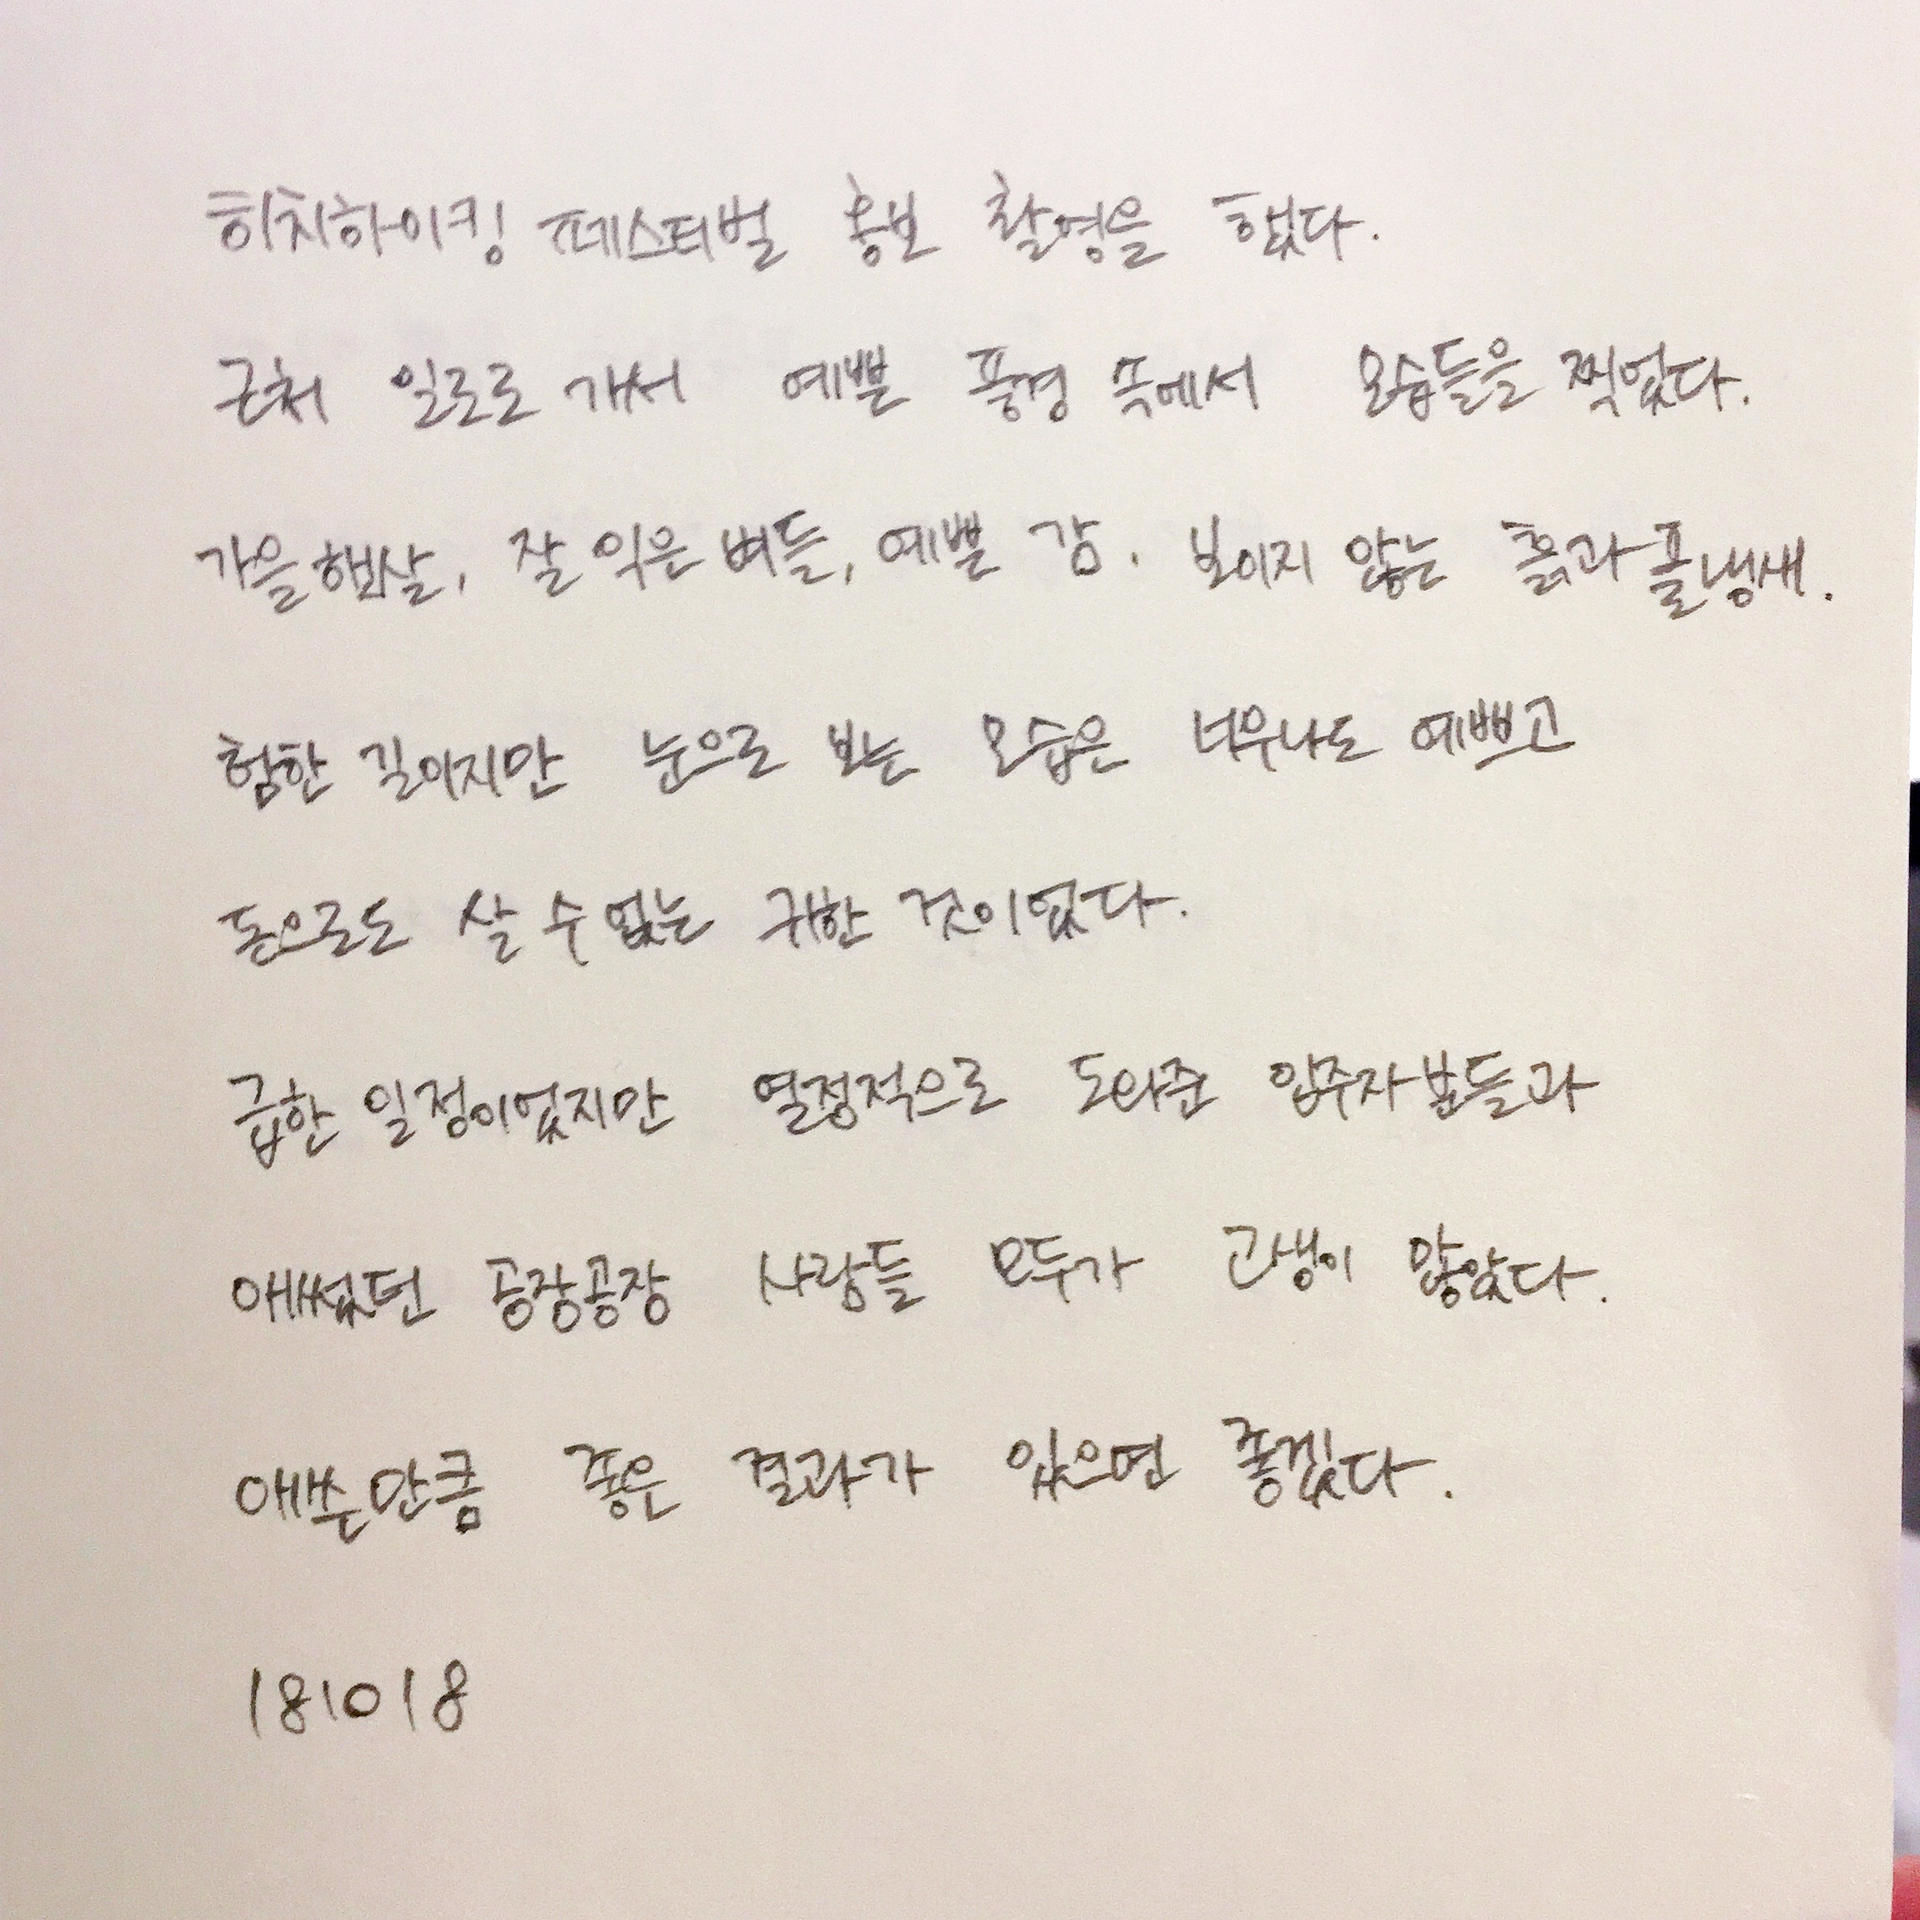 히치하이킹 페스티벌 홍보 촬영을 했다.
근처 일로로 가서 예쁜 풍경 속에서 모습들을 찍었다.
가을햇살, 잘 익은 벼들, 예쁜 감. 보이지 않는 흙과 풀냄새.
험한 길이지만 눈으로 보는 모습은 너무나도 예쁘고
돈으로도 살 수 없는 귀한 것이었다.
급한 일정이었지만 열정적으로 도와준 입주자분들과
애썼던 공장공장 사람들 모두가 고생이 많았다.
애쓴만큼 좋은 결과가 있으면 좋겠다.
181018